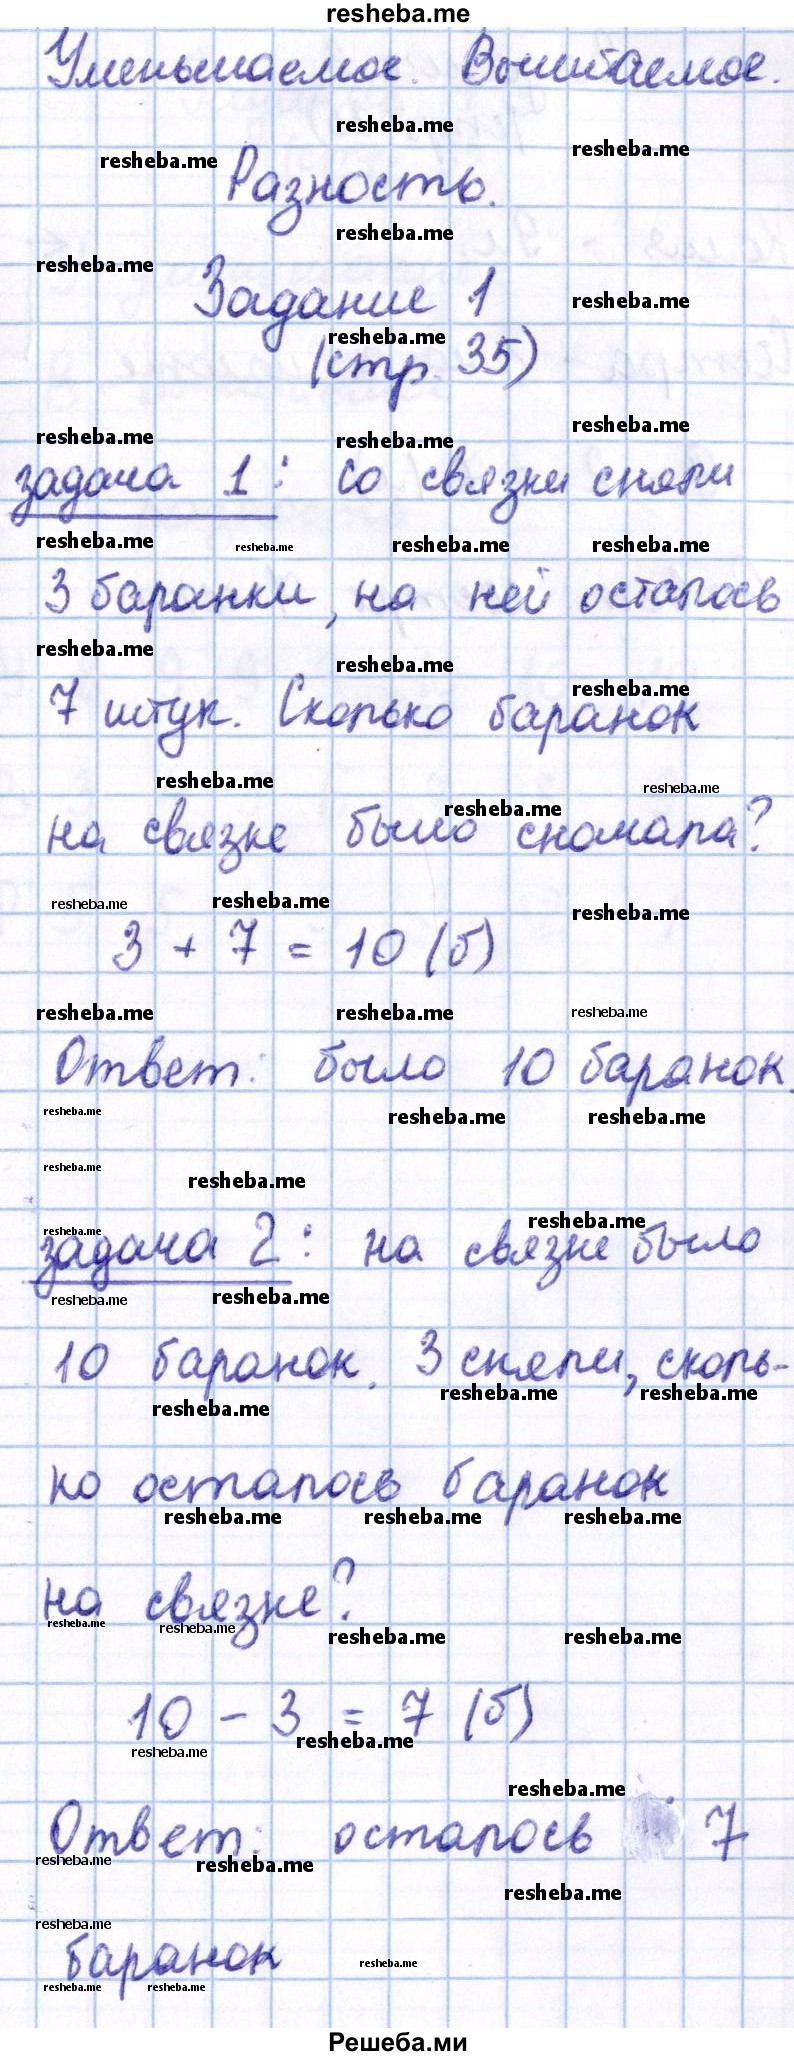 resheba.me
Уменьшаемое. Вычитаемое.
resheba.me
resheba.me resheba.me
Разность.
resheba.me
resheba.me
Задание 1 resheba.me
resheba.me
(стр. 35)
resheba.me
resheba.me resheba.me
задача 1: со связки сняли
resheba.me resheba.me resheba.me resheba.me
3 баранки, на ней осталось
resheba.me resheba.me
resheba.me
7 штук. Сколько баранок
resheba.me resheba.me
resheba.me
на связке было сначала?
resheba.me resheba.me resheba.me
3 + 7 = 10 (б)
resheba.me resheba.me resheba.me
Ответ: было 10 баранок.
resheba.me resheba.me resheba.me
resheba.me resheba.me
resheba.me resheba.me
задача 2: на связке было
resheba.me resheba.me
10 баранок. 3 сняли, сколь-
resheba.me resheba.me resheba.me
ко осталось баранок
resheba.me resheba.me resheba.me
на связке?
resheba.me resheba.me resheba.me resheba.me
10 - 3 = 7 (б)
resheba.me resheba.me
resheba.me
Ответ: осталось 7
resheba.me resheba.me
resheba.me
resheba.me
баранок resheba.me
resheba.me resheba.me
Решеба.ми